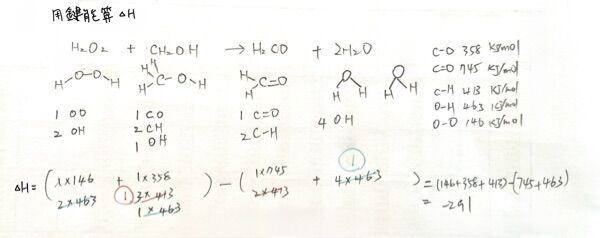 用鍵能算 ΔH
H₂O₂ + CH₃OH → H₂CO + 2H₂O
H O-O H H H H C-O H H H C=O O H H O H H
1 OO 1 CO 1 C=O 4 OH
2 OH 2 CH 2 C-H
1 OH
C-O 358 KJ/mol
C=O 745 KJ/mol
C-H 413 KJ/mol
O-H 463 KJ/mol
O-O 146 KJ/mol
1
ΔH = ( 1×146 + 1×358 ) - ( 1×745 + 4×463 ) = (146+358+413)-(745+463)
2×463 1 3×413 2×413 = -291
1×463